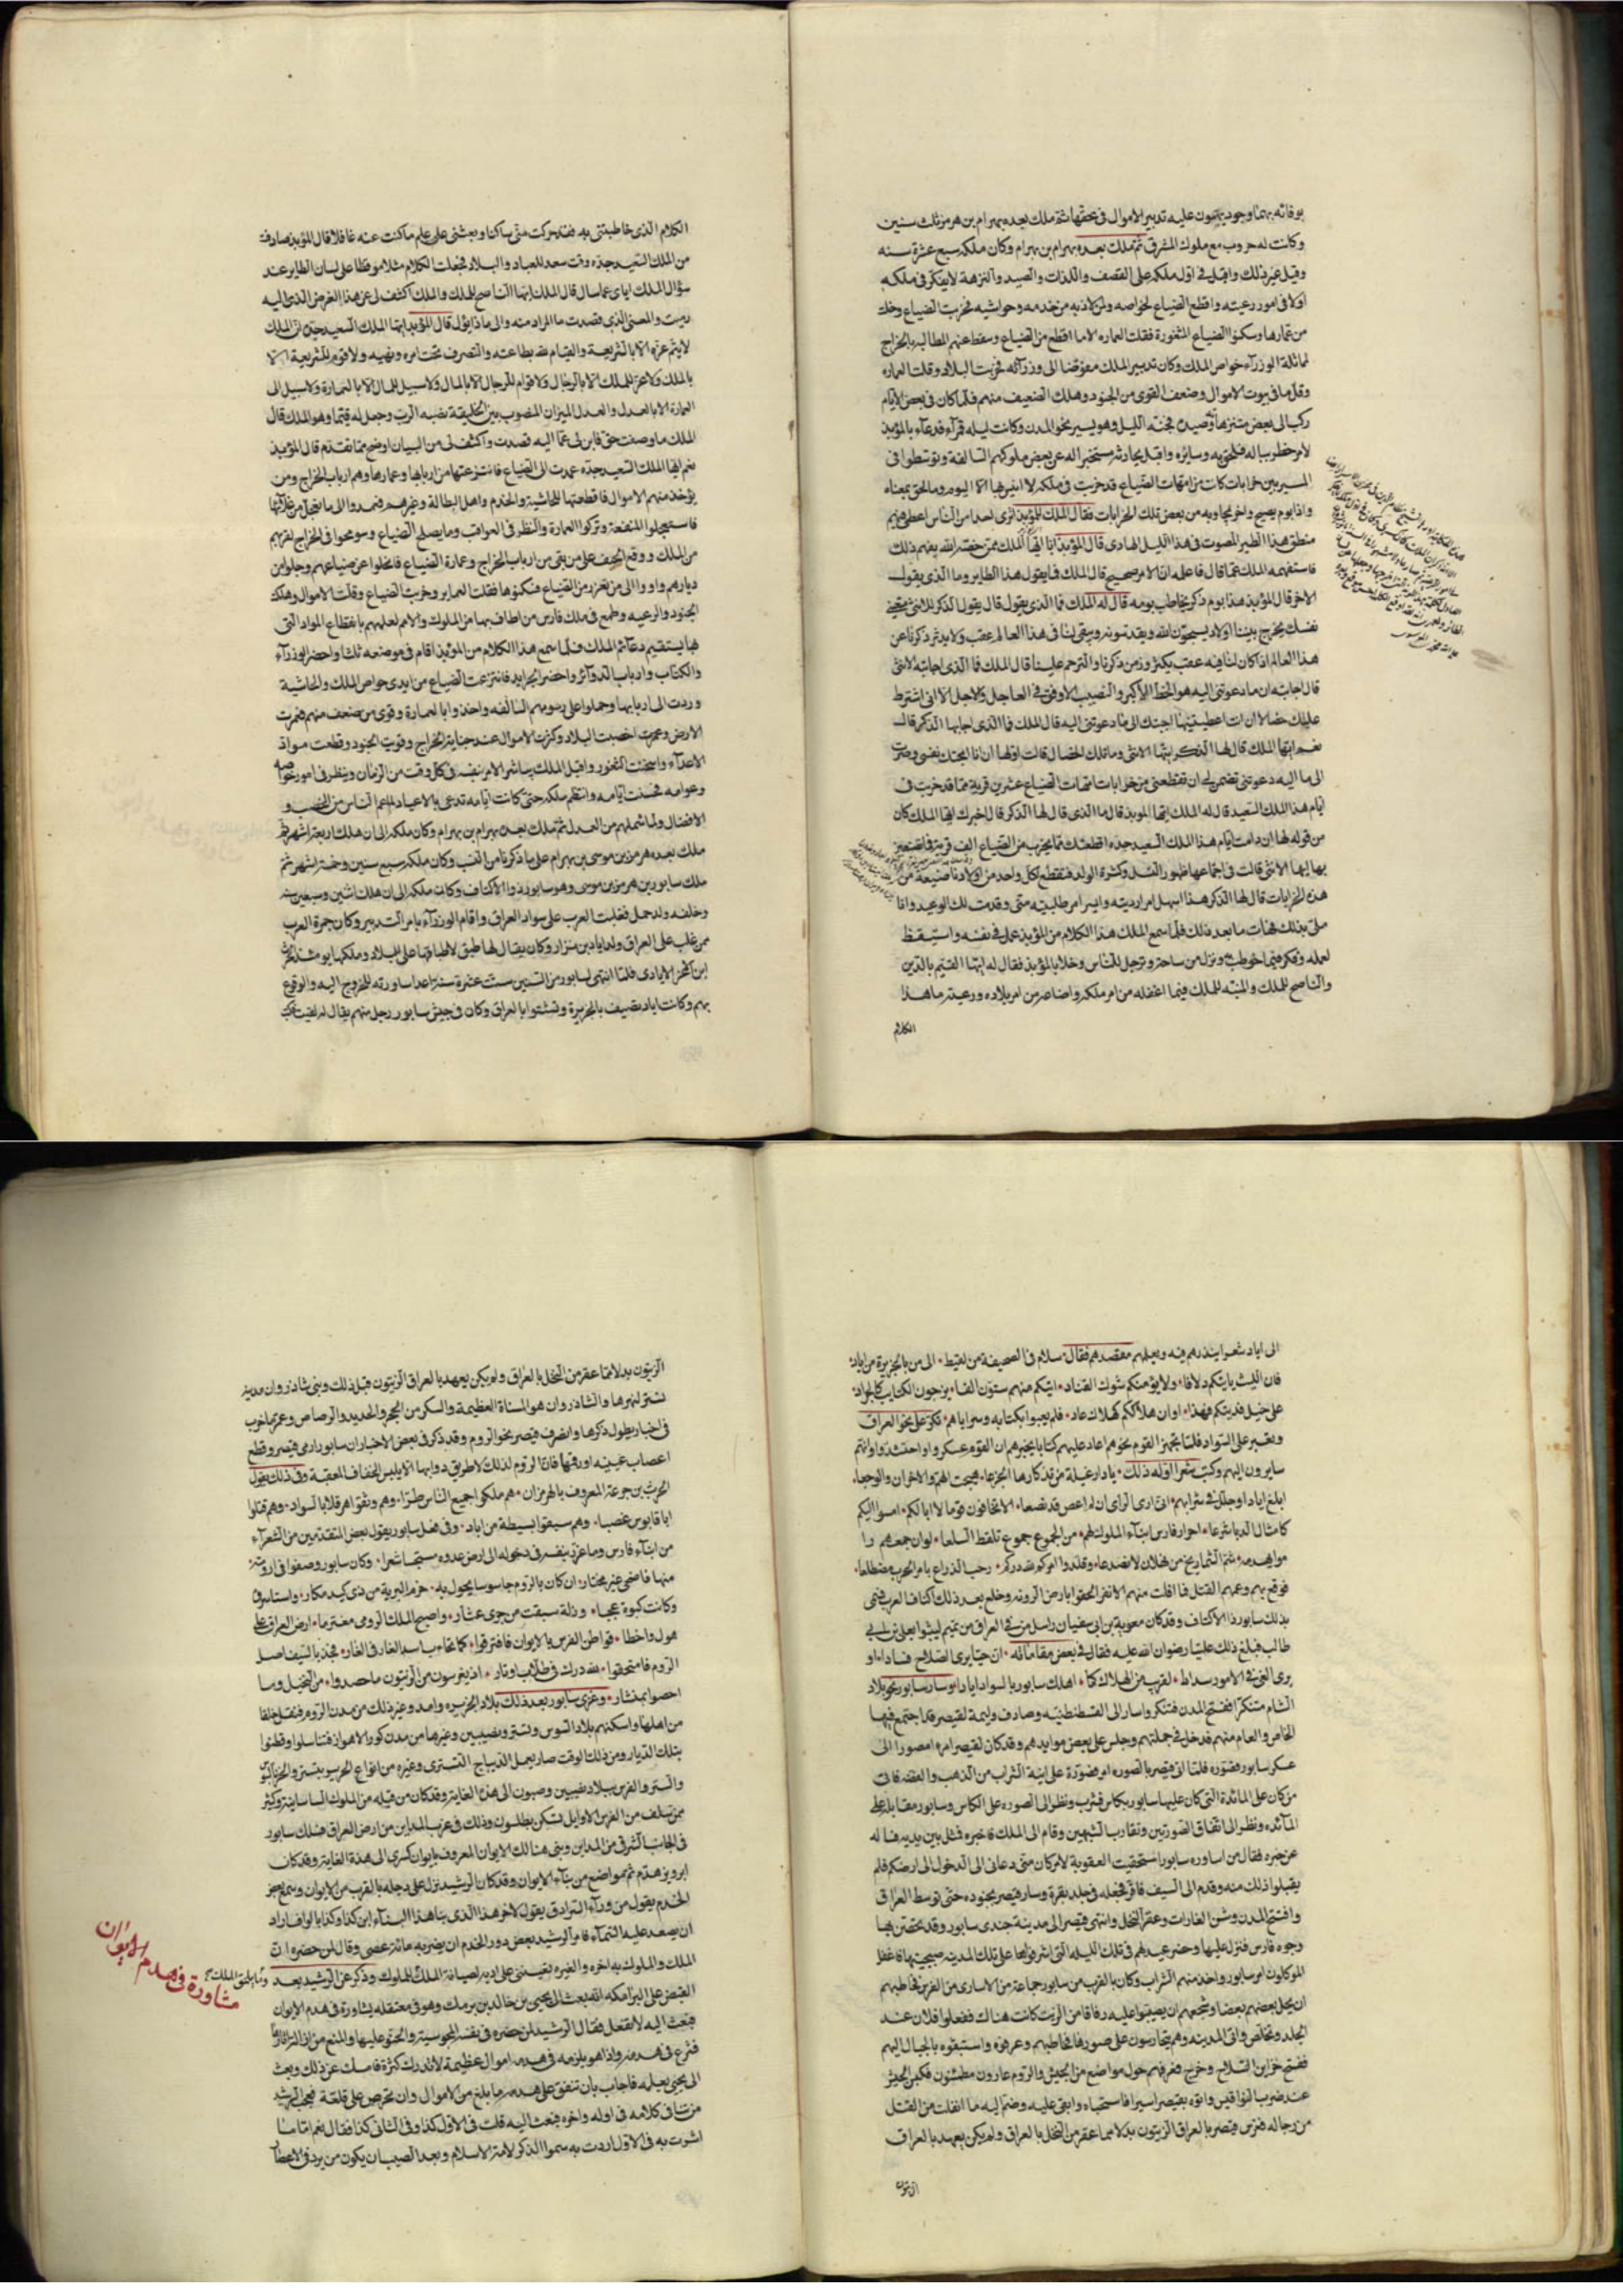 بوفائه بهما وجود يهون عليه تدبير الاموال في محقها ثم ملك بعده بهرام بن هرمز ثلث سنين
وكانت له حروب مع ملوك المشرق ثم ملك بعده بهرام بن بهرام وكان ملكه سبع عشرة سنه
وقيل غير ذلك واقبل في اول ملكه على القصف واللذات والصيد والنزهة لا يفكر في ملكه
اولا في امور رعيته واقطع الضياع لخواصه ولمن لاذ به من خدمه وحواشيه فخربت الضياع وخلت
من عمارها وسكنوا الضياع المتغورة فقلت العماره الا ما اقطع من الضياع وسقط عنهم المطالبه بالخراج
لماثلة الوزرآء خواص الملك وكان تدبير الملك مفوضا الى وزرآئه فخربت البلاد وقلت العماره
وقل ما في بيوت الاموال وضعف القوى من الجنود وهلك الضعيف منهم فلما كان في بعض الايام
ركب الى بعض متنزهاته وصيده فجنه الليل وهو يسير نحو المدن وكانت ليله قمرآء فدعآء بالمؤبذ
لامر خطر بباله فلحق به وسايره واقبل يحادثه مستخبرا له عن بعض ملوكهم السالفة وتوسطوا في
المسير بين خرابات كانت من امهات الضياع قد خربت في ملكه لا انيس بها الا اليوم وما لحق بمعناه
واذا بوم يصيح واخر يجاوبه من بعض تلك الخرابات فقال الملك للمؤبذ اترى احدا من الناس اعطى فهم
منطق هذا الطير المصوت في هذا الليل الهادى قال المؤبذ انا ايها الملك ممن خصه الله بفهم ذلك
فاستفهمه الملك عما قال فاعلمه ان الامر صحيح قال الملك فما يقول هذا الطاير وما الذى يقول
الاخر قال المؤبذ هذا بوم ذكر يخاطب بومه قال له الملك فما الذى يقول قال يقول الذكر للانثى متعينى
نفسك يخرج بيننا اولاد يسبحون الله ويقدسونه ويبقى لنا في هذا العالم عقب ولا يدثر ذكرنا عن
هذا العالم اذا كان لنا فيه عقب يكثرون من ذكرنا والترحم علينا قال الملك فما الذى اجابته الانثى
قال اجابته ان ما دعوتنى اليه هو الحظ الاكبر والنصيب الاوفق في العاجل والاجل الا انى اشترط
عليك خصالا ان انت اعطيتنيها اجبتك الى ما دعوتنى اليه قال الملك فما الذى اجابها الذكر قال
نعم ايها الملك قال لها الذكر ايتها الانثى وما تلك الخصال قالت اولها ان انا ابحتك نفسى وصرت
الى ما اليه دعوتنى تضمن لى ان تقطعنى من خرابات امهات الضياع عشرين قرية مما قد خربت في
ايام هذا الملك السعيد قال له الملك ايها الموبذ قال ما الذى قال لها الذكر قال اخبرك ايها الملك كان
من قوله لها ان دامت ايام هذا الملك السعيد جده اقطعتك مما يخرب من الضياع الف قرية فما تصنعين
بها ايها الانثى قالت في اجتماعها ظهور النسل وكثرة الولد فنقطع لكل واحد من اولادنا ضيعة من
هذه الخرابات قال لها الذكر هذا اسهل امر اردتيه وايسر امر طلبتيه منى وقدمت لك الوعيد وانا
ملى بذلك فهات ما بعد ذلك فلما سمع الملك هذا الكلام من المؤبذ عمل في نفسه واستيقظ
لعمله وفكر فيما خوطب به ونزل من ساعته وترجل للناس وخلا بالمؤبذ فقال له ايها القيم بالدين
والناصح للملك والمنبه للملك فيما اغفله من امر ملكه واضاعه من امر بلاده ورعيته ما هذا
الكلام
الكلام الذى خاطبتنى به فقد حركت منى ساكنا وبعثتنى على علم ما كنت عنه غافلا قال المؤبذ صادفت
من الملك السعيد جده وقت سعد للعباد والبلاد فجعلت الكلام مثلا موقظا على لسان الطاير عند
سؤال الملك اياى عما سال قال الملك ايها الناصح للملك والملك اكشف لى عن هذا الغرض الذى اليه
رميت والمعنى الذى قصدت ما المراد منه والى ماذا يؤل قال المؤبذ ايها الملك السعيد جده ان الملك
لا يتم عزه الا بالشريعة والقيام لله بطاعته والتصرف تحت امره ونهيه ولا قوام للشريعة الا
بالملك ولا عز للملك الا بالرجال ولا قوام للرجال الا بالمال ولا سبيل للمال الا بالعمارة ولا سبيل الى
العمارة الا بالعدل والعدل الميزان المنصوب بين الخليقة نصبه الرب وجعل له قيما وهو الملك قال
الملك ما وصفت حق فابن لى عما اليه قصدت واكشف لى من البيان اوضح مما تقدم قال المؤبذ
نعم ايها الملك السعيد جده عمدت الى الضياع فانتزعتها من اربابها وعمارها وهم ارباب الخراج ومن
يؤخذ منهم الاموال فاقطعتها الحاشية والخدم واهل البطالة وغيرهم فعمدوا الى ما تعجل من غلاتها
فاستعجلوا المنفعة وتركوا العمارة والنظر في العواقب وما يصلح الضياع وسومحوا في الخراج لقربهم
من الملك ووقع الحيف على من بقى من ارباب الخراج وعمارة الضياع فانجلوا عن ضياعهم وجلوا من
ديارهم واووا الى من تعزز من الضياع فسكنوها فقلت العماير وخربت الضياع وقلت الاموال وهلك
الجنود والرعيه وطمع في ملك فارس من اطاف بها من الملوك والامم لعلمهم بانقطاع المواد التى
بها يستقيم دعآئم الملك فلما سمع هذا الكلام من المؤبذ اقام في موضعه ثلثا واحضر الوزرآء
والكتاب وارباب الدوآئر واحضر الجرايد فانتزعت الضياع من ايدى خواص الملك والحاشية
وردت الى اربابها وحملوا على رسومهم السالفه واخذوا بالعمارة وقوى من ضعف منهم فعمرت
الارض وعمرت اخصبت البلاد وكثرت الاموال عند جباية الخراج وقويت الجنود وقطعت مواد
الاعدآء واسخنت الثغور واقبل الملك يباشر الامر بنفسه في كل وقت من الزمان وينظر في امور خواصه
وعوامه فحسنت ايامه وانتظم ملكه حتى كانت ايامه تدعى بالاعياد لما عم الناس من الخصب و
الافضال ولما شملهم من العدل ثم ملك بعده بهرام بن بهرام وكان ملكه الى ان هلك اربعة اشهر ثم
ملك بعده هرمز بن موسى بن بهرام على ما ذكرنا من النسب وكان ملكه سبع سنين وخمسة اشهر ثم
ملك سابور بن هرمز بن موسى وهو سابور ذو الاكتاف وكان ملكه الى ان هلك اثنين وسبعين سنه
وخلفه ولد حمل فغلبت العرب على سواد العراق واقام الوزرآء بامر التدبير وكان جمرة العرب
ممن غلب على العراق ولد اياد بن نزار وكان يقال لها طبق لاطباقها على البلاد وملكها يومئذ الحرث
ابن الاغر الايادى فلما انتهى لسابور من السنين ست عشرة سنة اعد اساورته للخروج اليه والوقوع
بهم وكانت اياد تصيف بالجزيرة وتشتو بالعراق وكان في جيش سابور رجل منهم يقال له لقيط فكتب
الى اياد شعرا ينذرهم فيه ويعلمهم مقصدهم فقال سلام في الصحيفة من لقيط الى من بالجزيرة من اياد
فان الليث ياتيكم دلافا ولا يؤمنكم شوك القتاد اتيكم منهم ستون الفا يزجون الكتايب كالجراد
على خيل فدينكم فهذا اوان هلاككم كهلاك عاد فلم يعبوا بكتابه وسراياهم تكر على نحو العراق
وتغير على السواد فلما تجهز القوم نحوهم اعاد عليهم كتابا يخبرهم ان القوم عسكروا واحتشدوا وانهم
سايرون اليهم وكتب شعرا اوله ذلك يا دار عبلة من تذكارها الجزعا هيجت الهم والاحزان والوجعا
ابلغ ايادا وحلل في سراتهم انى ارى الراى ان لم اعص قد نصعا الا تخافون قوما لا ابالكم امسوا اليكم
كامثال الدبا شرعا احرار فارس ابنآء الملوك لهم من الجموع جموع تلتقط السلعا لو ان جمعهم را
موا بهدمه شم الشماريخ من ثهلان لانصدعا وقلدوا امركم لله دركم رحب الذراع بامر الحرب مضطلعا
فوقع بهم وعمهم القتل فما افلت منهم الا نفر الحقوا بارض الروم وخلع بعد ذلك اكتاف العرب فسمى
بذلك سابور ذا الاكتاف وقد كان معوية بن ابى سفيان راسل من في العراق من تميم ليثبوا بعلى بن ابى
طالب فبلغ ذلك عليا رضوان الله عليه فقال في بعض مقاماته ان حيا يرى الصلاح فسادا او
يرى الغى في الامور سداط لقريب من الهلاك كما اهلك سابور بالسواد ايادا وسار سابور نحو بلاد
الشام متنكرا ففتح المدن فتنكر وسار الى القسطنطنيه وصادف وليمة لقيصر قد اجتمع فيها
الخاص والعام منهم فدخل في جملتهم وجلس على بعض موايدهم وقد كان لقيصر امر مصورا الى
عسكر سابور فصوره فلما اتى قيصر بالصوره امر فصورت على انية الشراب من الذهب والفضه فاتى
من كان على المائدة التى كان عليها سابور بكاس فشرب ونظر الى الصوره على الكاس وسابور مقابله على
المآئده ونظر الى اتفاق الصورتين وتقارب الشبهين وقام الى الملك فاخبره فمثل بين يديه فساله
عن خبره فقال من اساوره سابور استحقيت العقوبة لامر كان منى دعانى الى الدخول الى ارضكم فلم
يقبلوا ذلك منه وقدم الى السيف فاقر فجعله في جلد بقرة وسار قيصر بجنوده حتى توسط العراق
وافتتح المدن وشن الغارات وعقر النخل وانتهى قيصر الى مدينة جندى سابور وقد تحصن بها
وجوه فارس فنزل عليها وحضر عيد لهم في تلك الليله التى اشرفوا بها على تلك المدينه صبيحتها فاغفل
الموكلون امر سابور واخذ منهم الشراب وكان بالقرب من سابور جماعة من الاسارى من الفرس فخاطبهم
ان يحل بعضهم بعضا وشجعهم ان يصبوا عليه زقاقا من الزيت كانت هناك ففعلوا فلان عنه
الجلد وتخلص واتى المدينه وهم يتحارسون على سورها فخاطبهم وعرفوه واستبقوه بالحبال اليهم
ففتح خزاين السلاح وخرج ففرقهم حول مواضع من الجيش والروم غارون مطمئنون فكبس الجيش
عند ضرب النواقيس واتوه بقيصر اسيرا فاستحياه وابقى عليه وضم اليه ما انفلت من القتل
من رجاله فغرس قيصر بالعراق الزيتون بدلا مما عقر من النخل بالعراق ولم يكن يعهد بالعراق
الزيتون
الزيتون بدلا مما عقر من النخل بالعراق ولم يكن يعهد بالعراق الزيتون قبل ذلك وبنى شاذروان مدينة
تستر لنهرها والشاذروان هو المسناة العظيمة والسكر من الحجر والحديد والرصاص وعمر ما خرب
في اخبار يطول ذكرها وانصرف قيصر نحو الروم وقد ذكر في بعض الاخبار ان سابور ارى قيصر وقطع
اعصاب عينيه اورقها فان الروم لذلك لا طريق دوابها الا بلبس الخفاف المعقبة وفى ذلك يقول
الحرث بن جرعة المعروف بالهرمزان هم ملكوا جميع الناس طرا وهم ونفوا هرقلا بالسواد وهم قتلوا
ابا قابوس غصبا وهم سبقوا بسيطة من اياد وفى فعل سابور يقول بعض المتقدمين من الشعرآء
من ابنآء فارس وما عزز بنفسه في دخوله الى ارض عدوه مستجما شعرا وكان سابور وصفوا في ارومته
منها فاضحى غير مختار ان كان بالروم جاسوسا يحول به حزم البرية من ذى كيد مكار واستاسروه
وكانت كبوة عجبا وزلة سبقت من جرى عشار واصبح الملك الرومى مغترما ارض العراق على
هول واخطا فواطن الفرس بالايوان فافترقوا كما تجاوب اسد الغار في الغار فجذ بالسيف اصل
الروم فامتحقوا لله درك في طلاب اوتار اذ يغرسون من الزيتون ما حصدوا من النخيل وما
احصوا بمنشار وغزى سابور بعد ذلك بلاد الجزيره وامد وغير ذلك من مدن الروم فنقل خلقا
من اهلها واسكنهم بلاد السوس وتستر ونصيبين وغيرها من مدن كور الاهواز فتناسلوا وقطنوا
بتلك الديار ومن ذلك الوقت صار يعمل الديباج التسترى وغيره من انواع الحرير بتستر والخز بالسوس
والستر والفرش ببلاد نصيبين وصيون الى هذه الغاية وقد كان من قبله من الملوك الساسانية وكثير
ممن سلف من الفرس الاوايل تسكن بطلسون وذلك في غرب المداين من ارض العراق فسلك سابور
في الجانب الشرقى من المداين وبنى هنالك الايوان المعروف بايوان كسرى الى هذه الغاية وقد كان
ابرويز هدم ثم مواضع من بنآء الايوان وقد كان الرشيد نزل على دجله بالقرب من الايوان وسمع بعض
الخدم يقول من ورآء السرادق يقول لاخر هذا الذى بنا هذا البنآء ابن كذا وكذا بالوا فاراد
ان يصعد عليه السمآء فامر الرشيد بعض دور الخدم ان يضربه مائة عصى وقال لمن حضره ان
الملك والملوك به اخره والغيره بعثتنى على ادبه لصيانة الملك للملوك وذكر عن الرشيد بعد
القبض على البرامكه انه بعث الى يحيى بن خالد بن برمك وهو في معتقله يشاوره في هدم الايوان
فبعث اليه لا تفعل فقال الرشيد لمن حضره في نفسه المجوسية والحنو عليها والمنع من ازالة اثارها
فشرع في هدمه واذا هو يلزمه في هدمه اموال عظيمة لا تدرك كثرة فامسك عن ذلك وبعث
الى يحيى يعلمه فاجاب بان تنفق على هدمه ما بلغ من الاموال وان تحرص على قلعة فعجب الرشيد
من تنافى كلامه في اوله واخره فبعث اليه قلت في الاول كذا وفى الثانى كذا فقال نعم اما ما
اشرت به في الاول اردت به سموا الذكر لامة الاسلام وبعد الصيت ان يكون من يرد في الاعصار
مشاورة في هدم الايوان